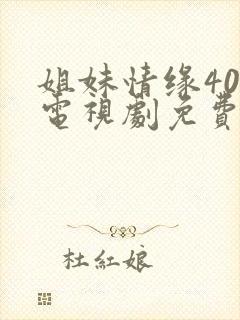 姐妹情缘40
電視劇免費
杜紅娘